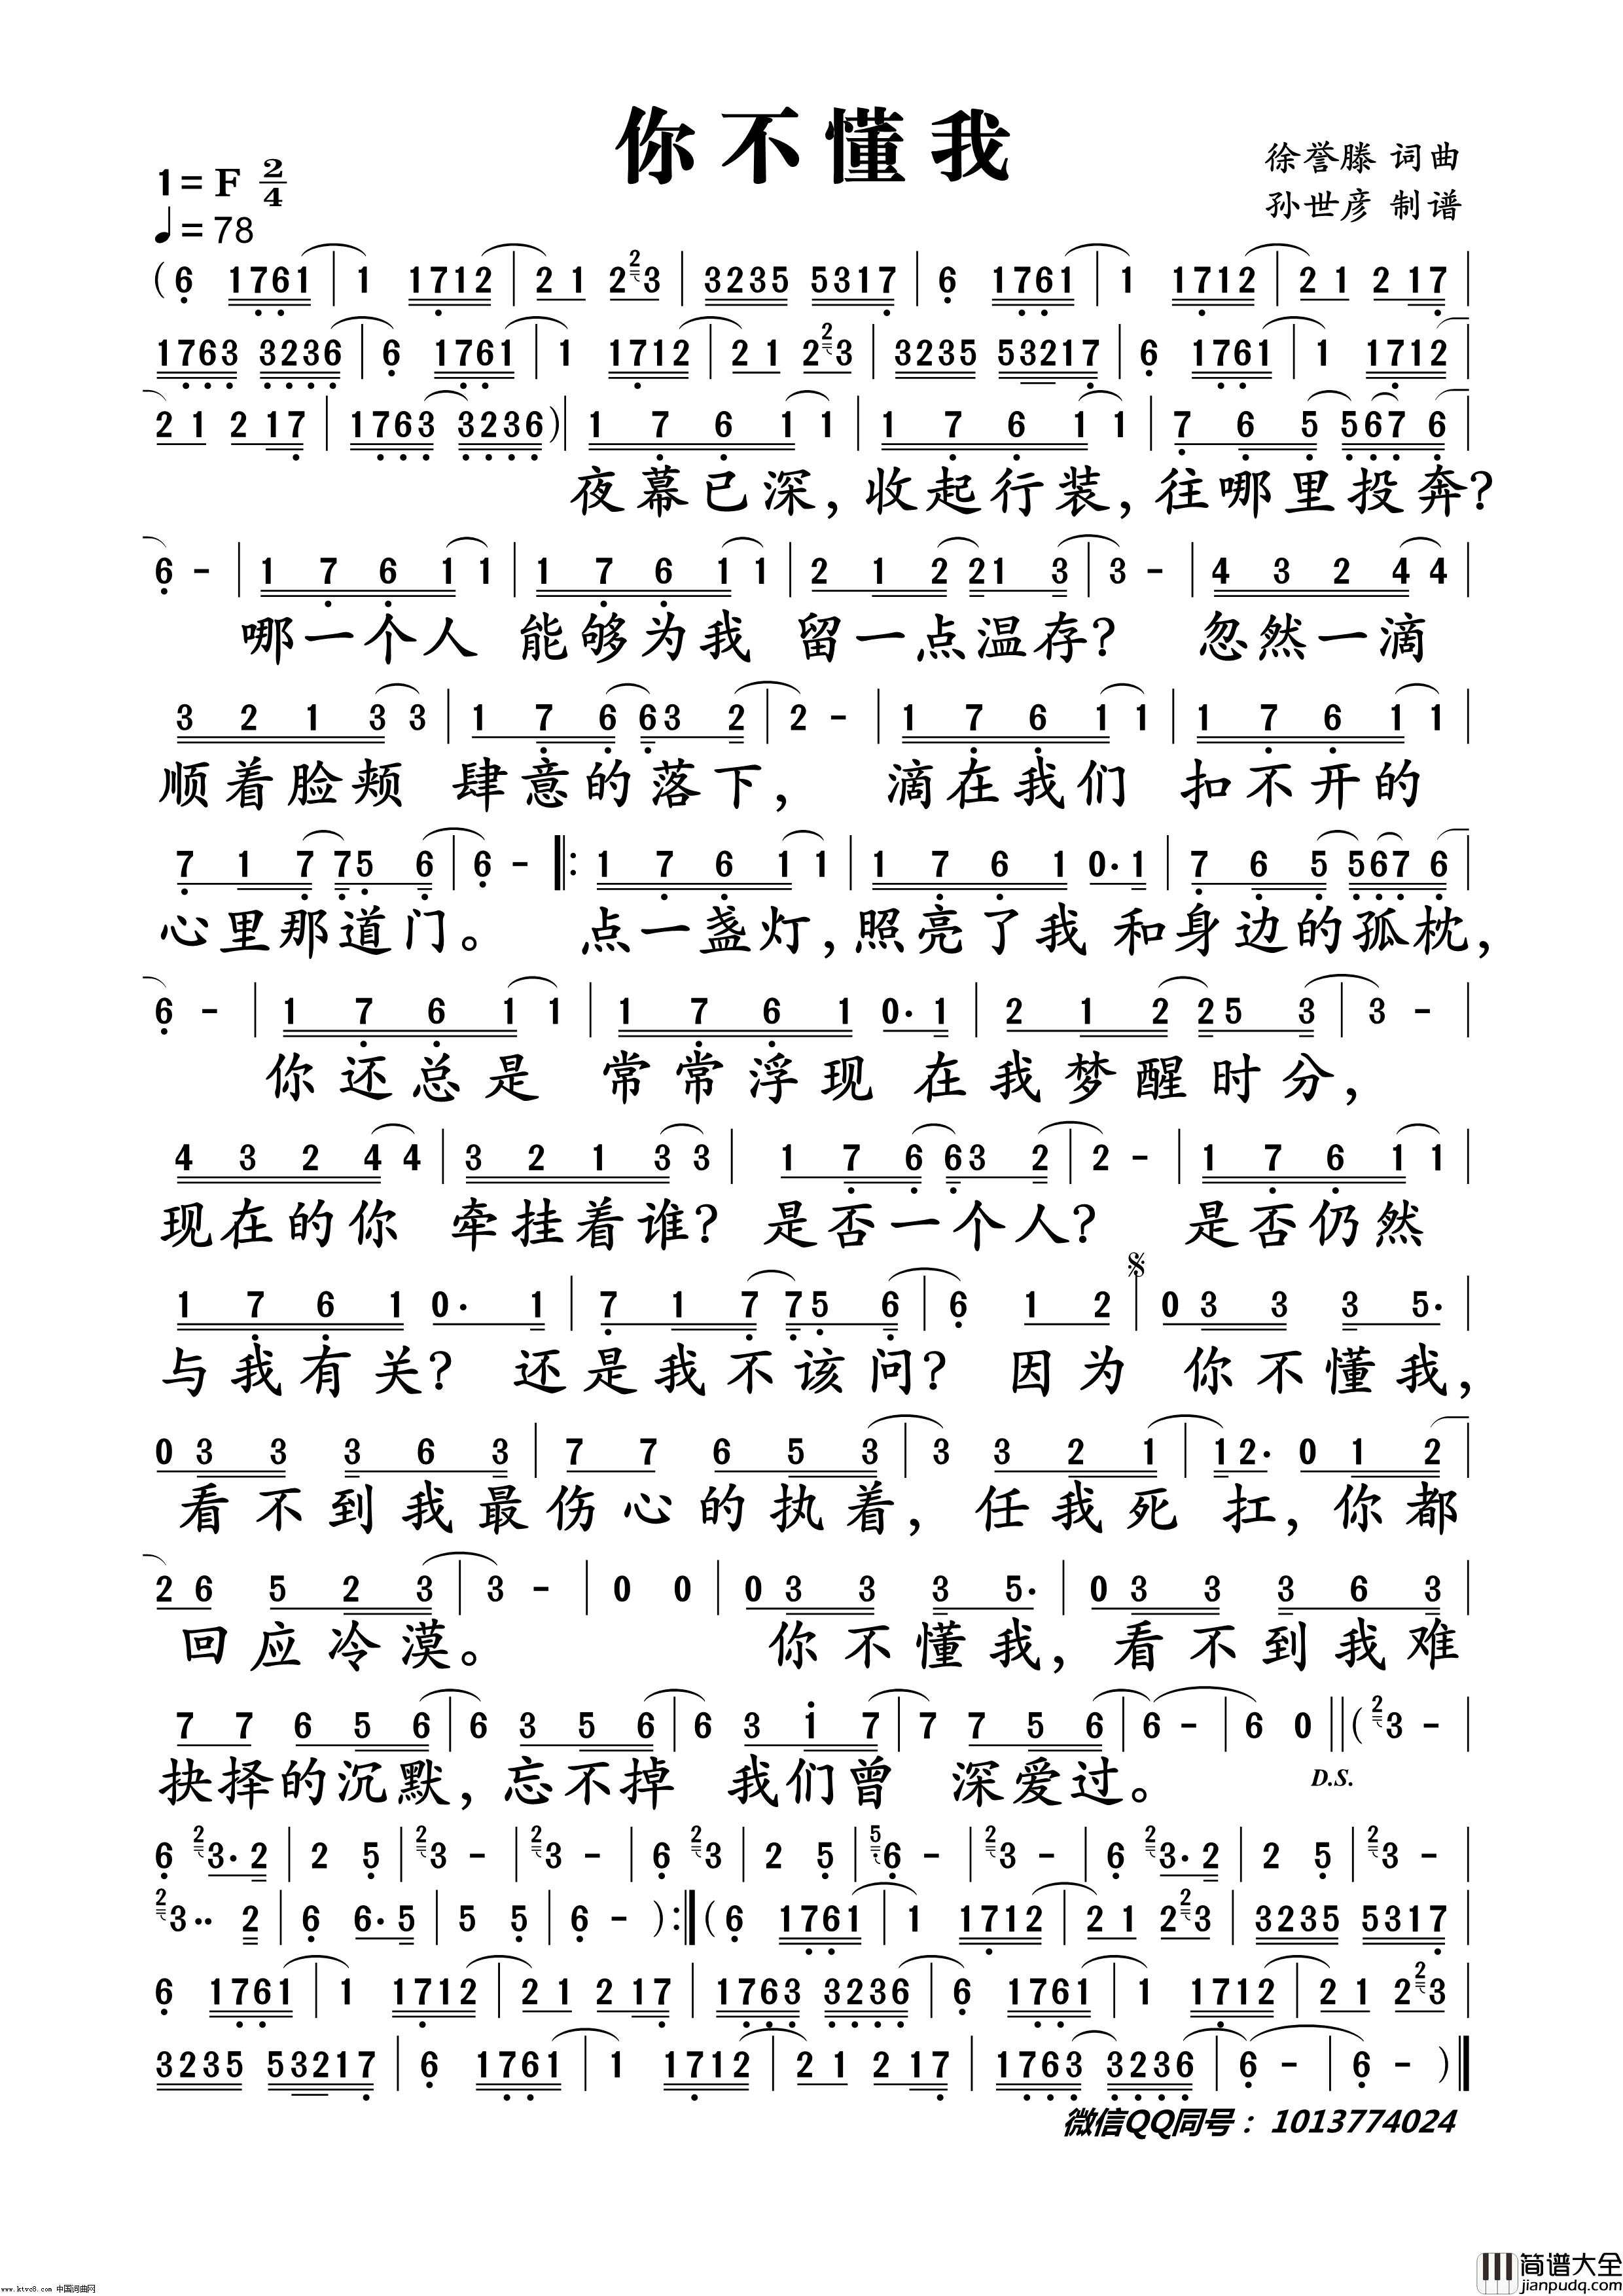 你不懂我
1=F 2/4
徐誉滕 词曲
♩=78
孙世彦 制谱
(6 1761 | 1 1712 | 2 1 2 2 3 | 3235 5317 | 6 1761 | 1 1712 | 2 1 2 17 |
1763 3236 | 6 1761 | 1 1712 | 2 1 2 2 3 | 3235 53217 | 6 1761 | 1 1712 |
2 1 2 17 | 1763 3236) | 1 7 6 1 1 | 1 7 6 1 1 | 7 6 5 567 6 |
夜幕已深,收起行装,往哪里投奔?
6 - | 1 7 6 1 1 | 1 7 6 1 1 | 2 1 2 21 3 | 3 - | 4 3 2 4 4 |
哪一个人 能够为我 留一点温存? 忽然一滴
3 2 1 3 3 | 1 7 6 63 2 | 2 - | 1 7 6 1 1 | 1 7 6 1 1 |
顺着脸颊 肆意的落下, 滴在我们 扣不开的
7 1 7 75 6 | 6 - ‖: 1 7 6 1 1 | 1 7 6 1 0· 1 | 7 6 5 567 6 |
心里那道门。 点一盏灯,照亮了我 和身边的孤枕,
6 - | 1 7 6 1 1 | 1 7 6 1 0· 1 | 2 1 2 25 3 | 3 - |
你还总是 常常浮现 在我梦醒时分,
4 3 2 4 4 | 3 2 1 3 3 | 1 7 6 63 2 | 2 - | 1 7 6 1 1 |
现在的你 牵挂着谁? 是否一个人? 是否仍然
1 7 6 1 0· 1 | 7 1 7 75 6 | 6 1 2 | 0 3 3 3 5· |
与我有关? 还是我不该问? 因为 你不懂我,
0 3 3 3 6 3 | 7 7 6 5 3 | 3 3 2 1 | 12· 0 1 2 |
看不到我最伤心的执着, 任我死 扛,你都
2 6 5 2 3 | 3 - | 0 0 | 0 3 3 3 5· | 0 3 3 3 6 3 |
回应冷漠。 你不懂我,看不到我难
7 7 6 5 6 | 6 3 5 6 | 6 3 1 7 | 7 7 5 6 | 6 - | 6 0 ‖ (2 3 - |
抉择的沉默,忘不掉 我们曾 深爱过。 D.S.
6 2 3· 2 | 2 5 | 2 3 - | 2 3 - | 6 2 3 | 2 5 | 5 6 - | 2 3 - | 6 2 3· 2 | 2 5 | 2 3 -
2 3·· 2 | 6 6· 5 | 5 5 | 6 - ) :‖ (6 1761 | 1 1712 | 2 1 2 2 3 | 3235 5317 |
6 1761 | 1 1712 | 2 1 2 17 | 1763 3236 | 6 1761 | 1 1712 | 2 1 2 2 3 |
3235 53217 | 6 1761 | 1 1712 | 2 1 2 17 | 1763 3236 | 6 - | 6 - ) ‖
微信QQ同号:1013774024
www.ktvc8.com 中国词曲网
简谱大全
jianpudq.com